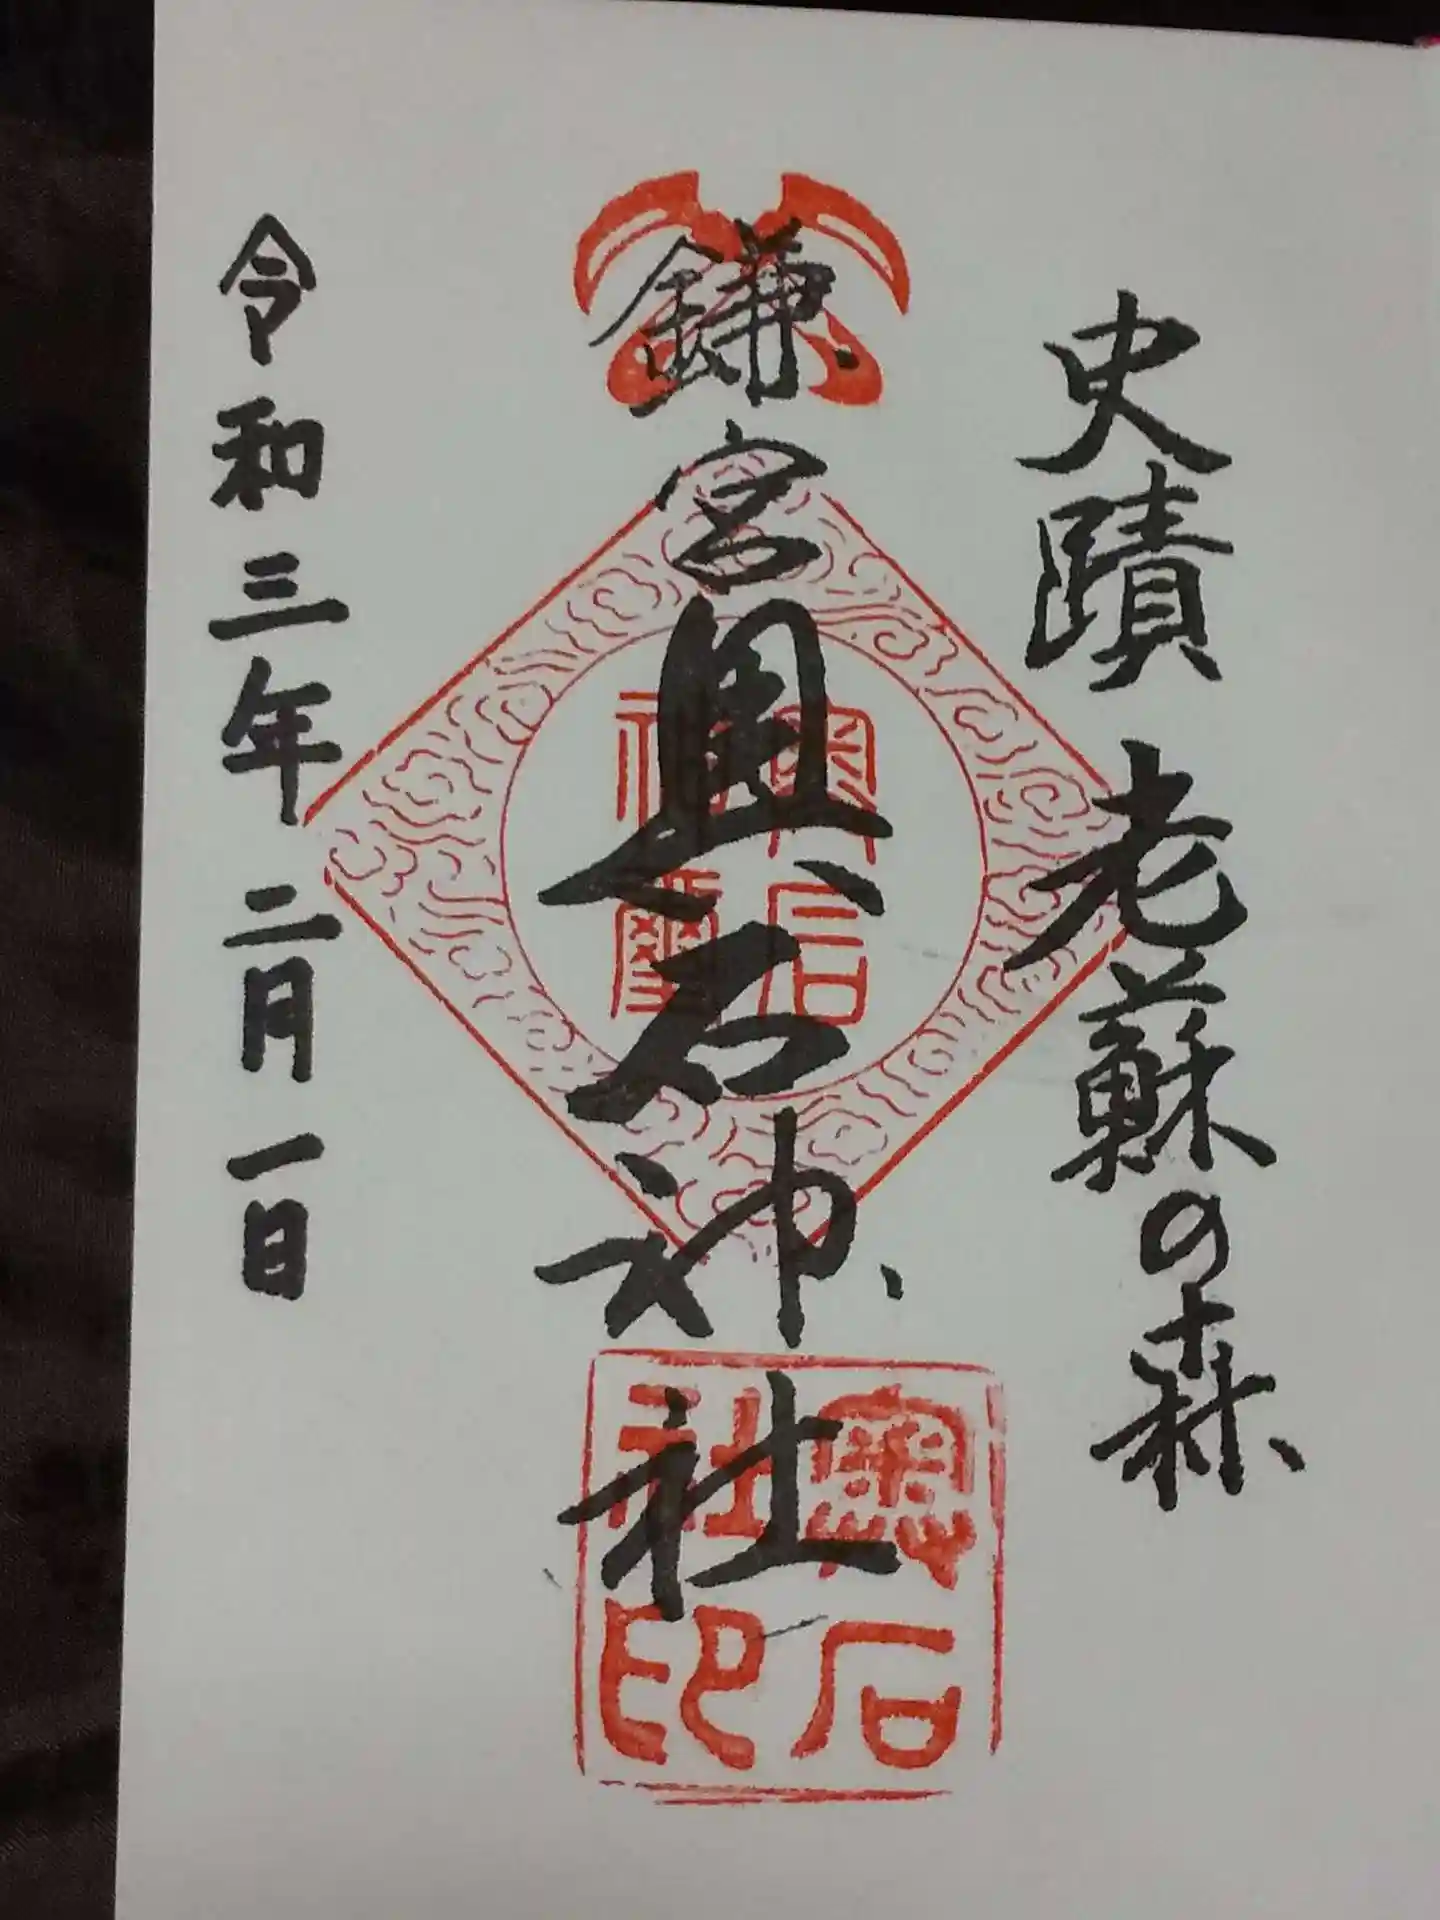 史蹟 老蘇の森
鎌宮奥石神社
令和三年二月一日
奥石
神璽
奥石
社印